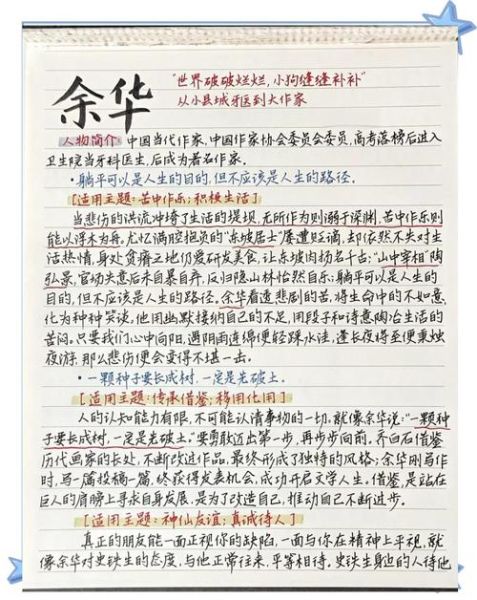 余华
"世界破破烂烂,小狗缝缝补补"
从小县城牙医到大作家
人物简介:中国当代作家,中国作家协会委员会委员,高考落榜后进入
卫生院当牙科医生,后成为著名作家。
·躺平可以是人生的目的,但不应该是人生的路径。
[适用主题:苦中作乐;积极生活]
当悲伤的洪流冲垮了生活的堤坝,无所作为则溺于深渊,苦中作乐则
能以浮木为舟。尤忆满腔抱负的"东坡居士"屡遭贬谪,却依然不失对生
活热情,身处贫瘠之地仍爱研发美食,让东坡肉扬名千古;"山中宰相"陶
弘景,官场失意后未自暴自弃,反归隐山林怡然自乐;躺平可以是人生的
目的,但不应该是人生的路径。余华看透悲剧的苦,将生命中的不如意
化为种种笑谈,他用幽默接纳自己的不足,用段子和诗意陶冶生活的
苦闷。只要我们心中向阳,遇阴雨连绵便轻踩水洼,逢长夜将至便秉烛
夜游,那么悲伤便会变得不堪一击。
·一颗种子要长成树,一定是先破土。
[适用主题:传承借鉴;移用化用]
人的认知能力有限,不可能认清事物的一切,就像余华说:"一颗种
子要长成树,一定是先破土"要勇敢迈出第一步,再步步向前。齐白石借鉴
历代画家的长处,不断改进作品,最终形成了独特的风格;余华刚写作
时,写一篇投稿一篇,终获得发表机会,成功开启文学人生。借鉴,是站在
巨人的肩膀上寻求自身发展,是为了改造自己,推动自己不断进步。
[适用主题:神仙友谊;真诚待人]
真正的朋友能一面正视你的缺陷,一面与你在精神上平视,就
像余华对史铁生的态度,与他正常往来,平等相待。史铁生身边的人待他